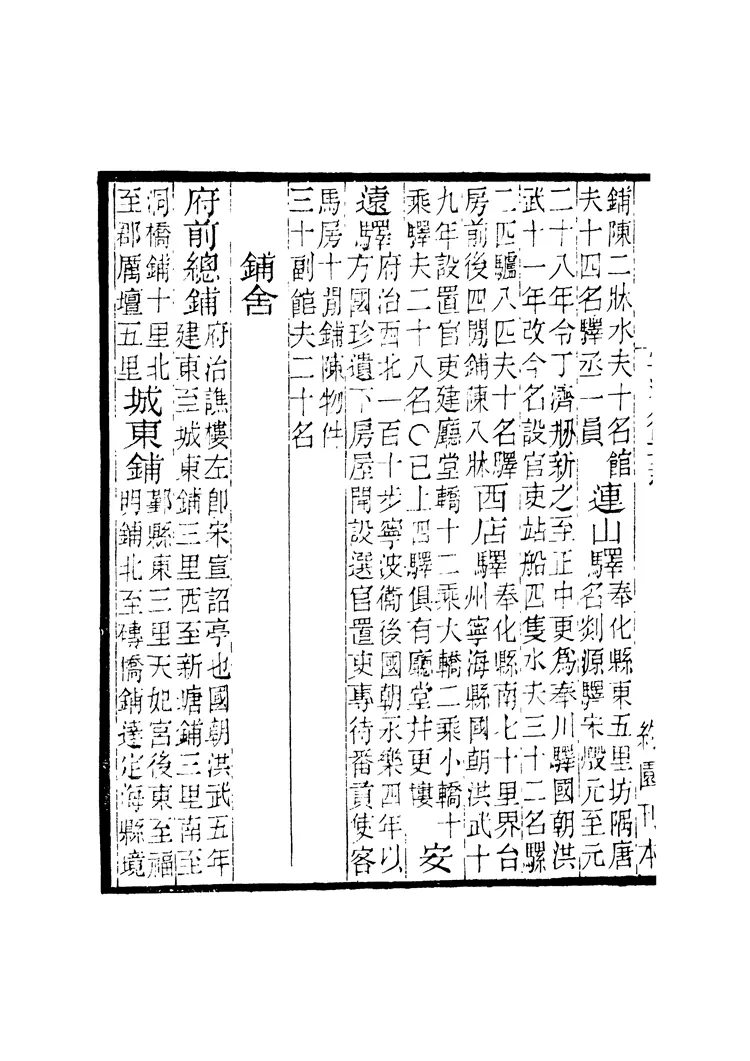 鋪陳二牀水夫十名館
夫十四名驛丞一員
連山驛
奉化縣東五里坊隅唐
名剡源驛宋燬元至元
二十八年令丁濟刱新之至正中更爲奉川驛國朝洪
武十一年改今名設官吏站船四隻水夫三十二名騾
二匹驢八匹夫十名驛
房前後四間鋪陳八牀
西店驛
奉化縣南七十里界台
州寧海縣國朝洪武十
九年設置官吏建廳堂轎十二乘大轎二乘小轎十
乘驛夫二十八名〇已上四驛俱有廳堂井更樓
安
遠驛
府治西北一百十步寧波衞後國朝永樂四年以
方國珍遺下房屋開設選官置吏專待番貢使客
馬房十間鋪陳物件
三十副館夫二十名
鋪舍
府前總鋪
府治譙樓左卽宋宣詔亭也國朝洪武五年
建東至城東鋪三里西至新塘鋪三里南至
洞橋鋪十里北
至郡厲壇五里
城東鋪
鄞縣東三里天妃宮後東至福
明鋪北至磚橋鋪達定海縣境
約園刊本